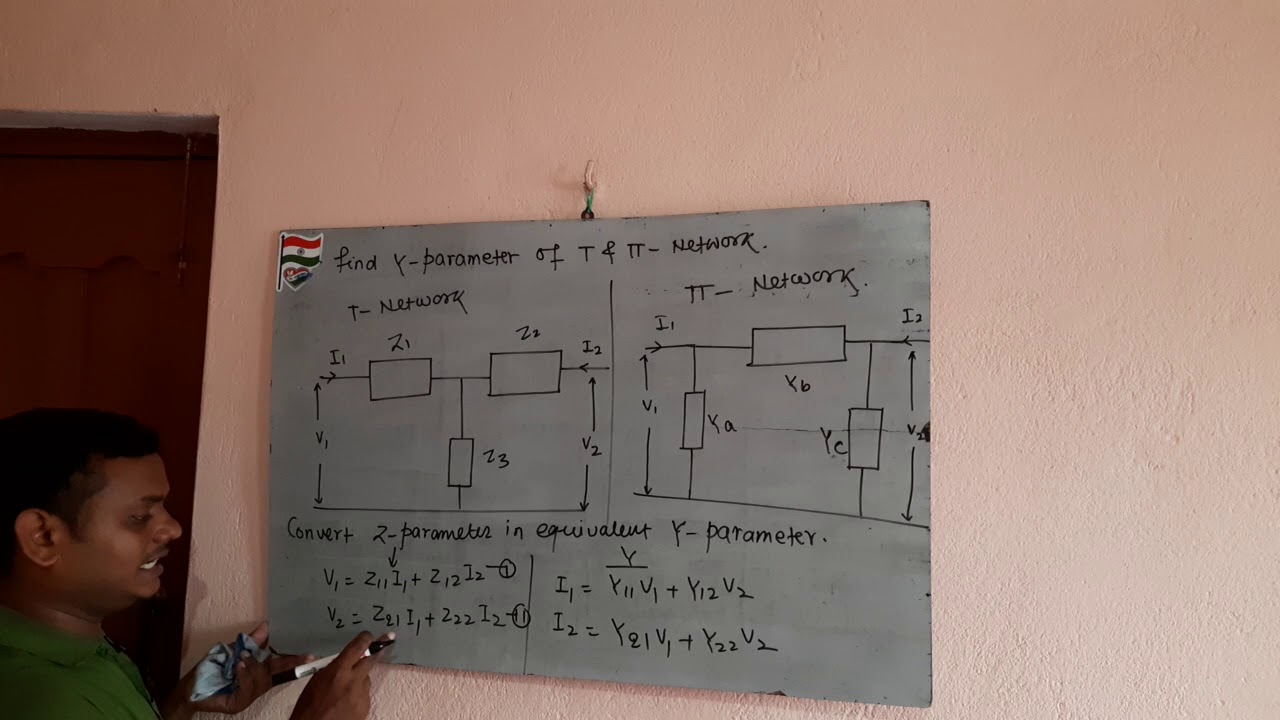 Find Y-parameter of T & π-Network.
T-Network
π-Network.
I1
Z1
Z2
I2
V1
Z3
V2
I1
I2
Yb
V1
Ya
Yc
V2
Convert Z-parameter in equivalent Y-parameter.
V1 = Z11 I1 + Z12 I2 -①
V2 = Z21 I1 + Z22 I2 -⑪
Y
I1 = Y11 V1 + Y12 V2
I2 = Y21 V1 + Y22 V2